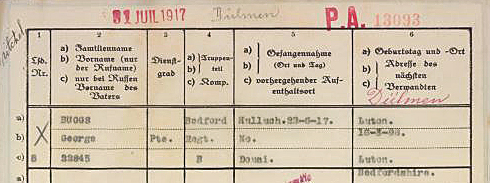 31 JUIL 1917 Dülmen P.A. 13093
1 2 3 4 5 6
Lfd. Nr.
a) Familienname
b) Vorname (nur der Rufname)
c) nur bei Russen Vorname des Vaters
Dienst-grad
a) Truppen-
b) teil
c) Komp.
a) Gefangennahme
b) (Ort und Tag)
c) vorhergehender Auf-enthaltsort
a) Geburtstag und -Ort
b) Adresse des nächsten
c) Verwandten
Dülmen
a) BUGGS Bedford Hulluch.23-6-17. Luton.
b) X George Pte. Regt. No.
c) 8 22845 B Douai. Luton.
a) Bedfordshire.